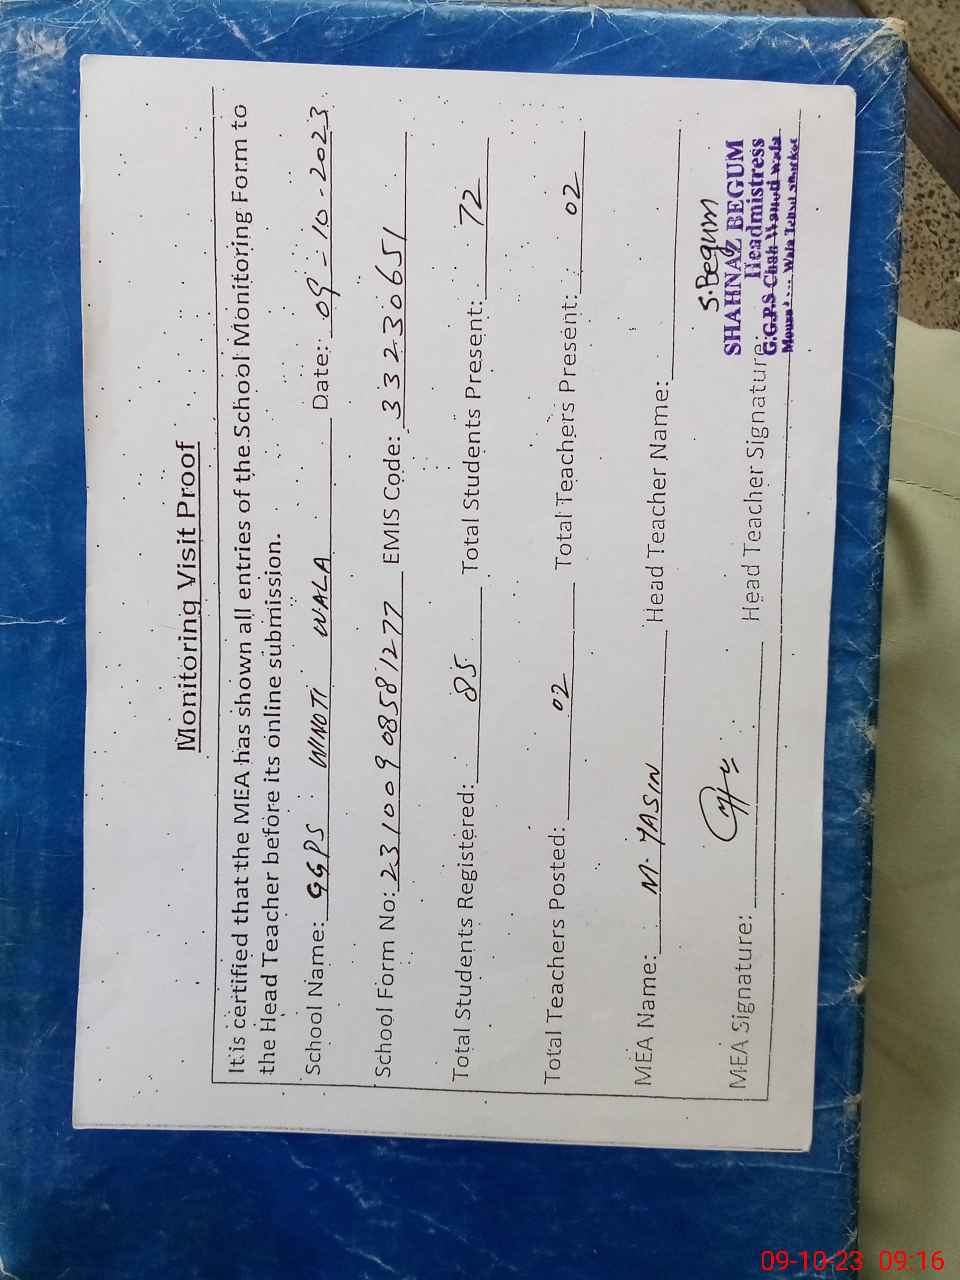 Monitoring Visit Proof
It is certified that the MEA has shown all entries of the School Monitoring Form to
the Head Teacher before its online submission.
School Name: GGPS WINOTI WALA Date: 09-10-2023
School Form No: 23100908581277 EMIS Code: 33230651
Total Students Registered: 85 Total Students Present: 72
Total Teachers Posted: 02 Total Teachers Present: 02
MEA Name: M. YASIN Head Teacher Name:
MEA Signature: Head Teacher Signature: S. Begum
SHAHNAZ BEGUM
Headmistress
G.G.P.S Chah Wala
Wala
09-10-23 09:16